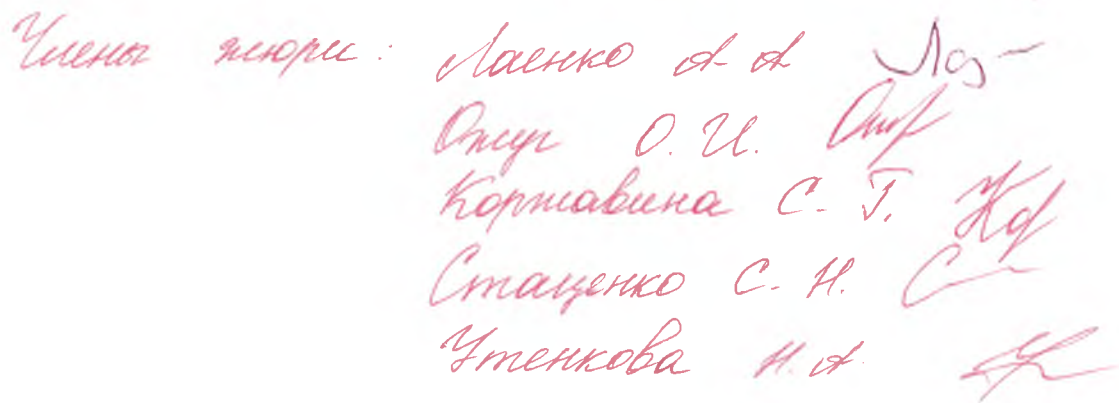 Члены жюри: Лаенко А А
Ожуг О. И.
Коржавина С. Г.
Стаценко С. Н.
Утенкова Н. А.